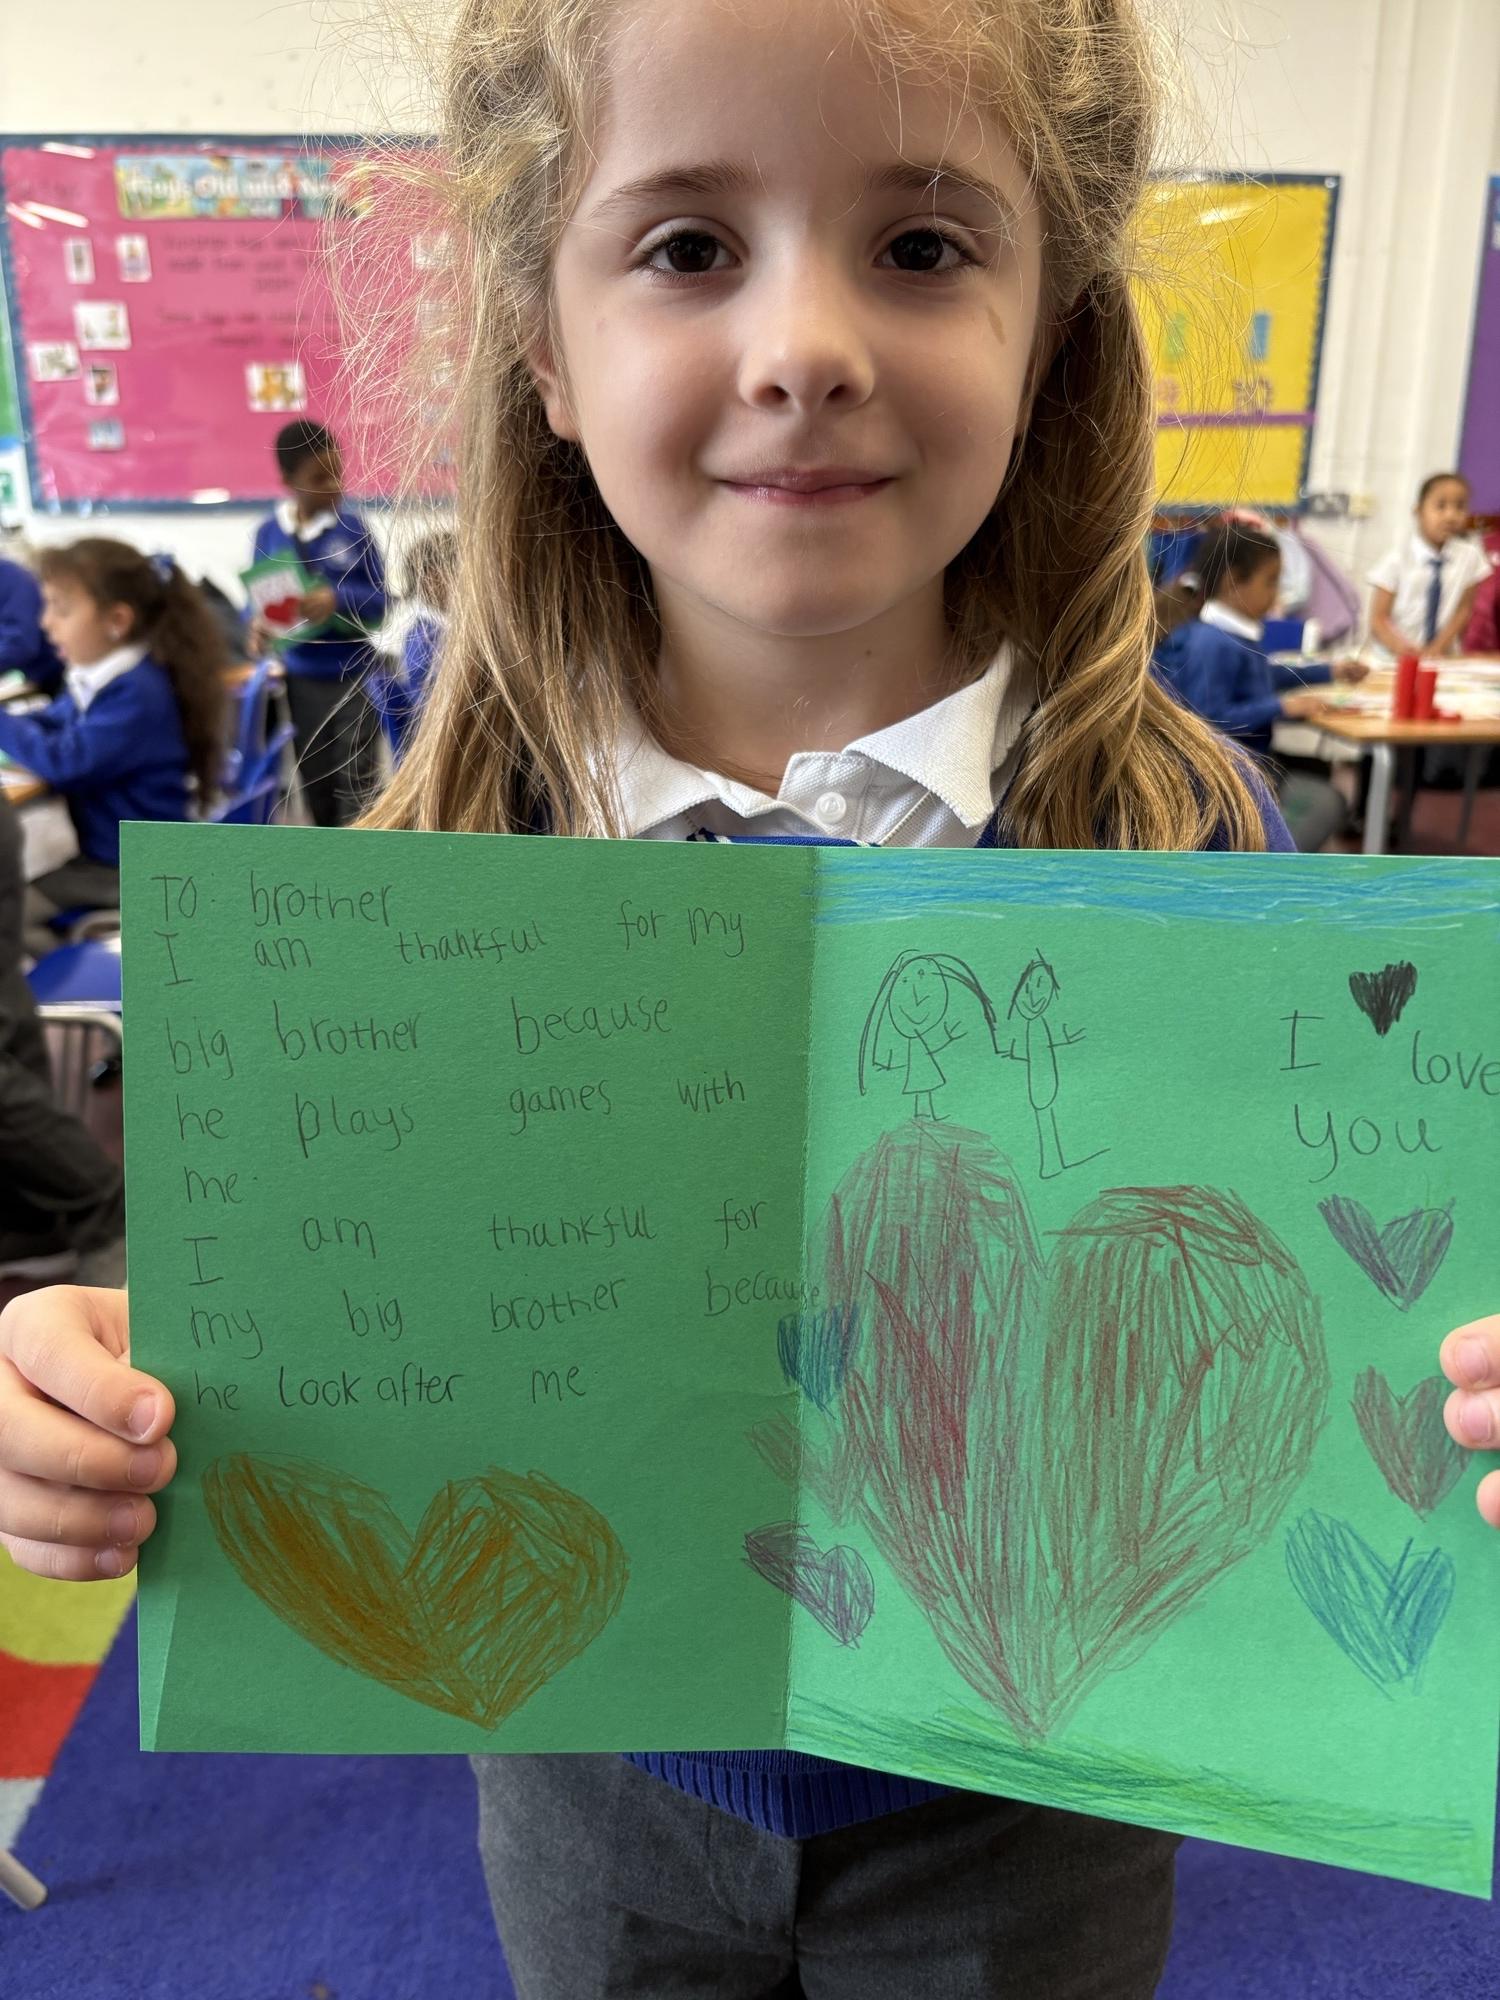 Toys Old and New
TO: brother
I am thankful for my
big brother because
he plays games with
me.
I am thankful for
my big brother because
he look after me
I love
you